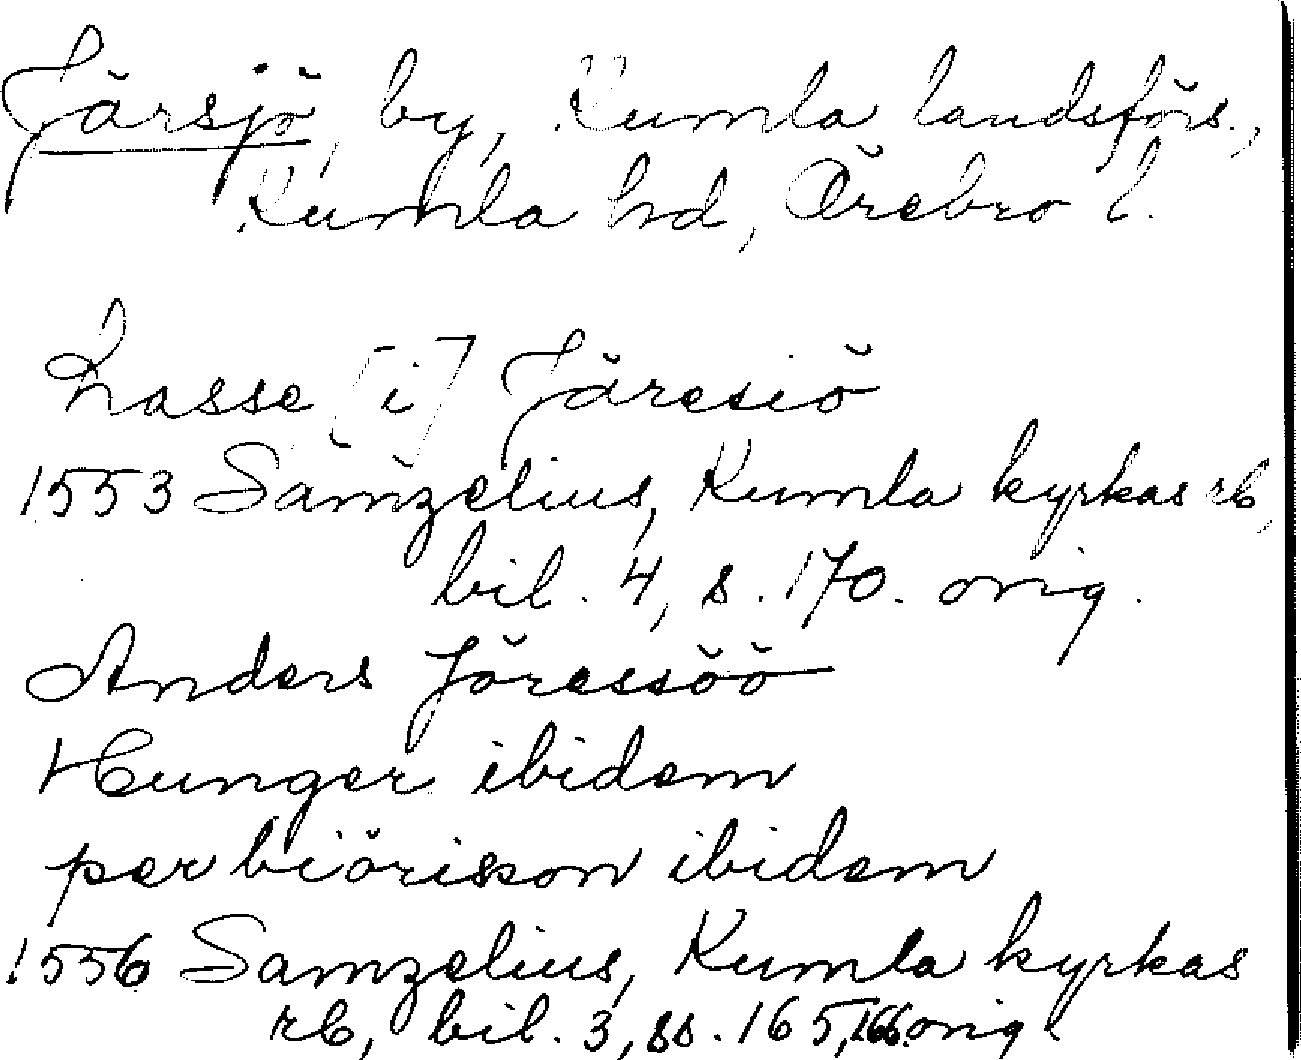 Järsjö, by, Kumla landsförs.,
Kumla hd, Örebro l.
Lasse [i] Järesiö
1553 Sämzelius, Kumla kyrkas rb,
bil. 4, s. 170. orig.
Anders Jöressöö
Hunger ibidem
per biörisson ibidem
1556 Samzelius, Kumla kyrkas
rb, bil. 3, ss. 165, 166. orig.